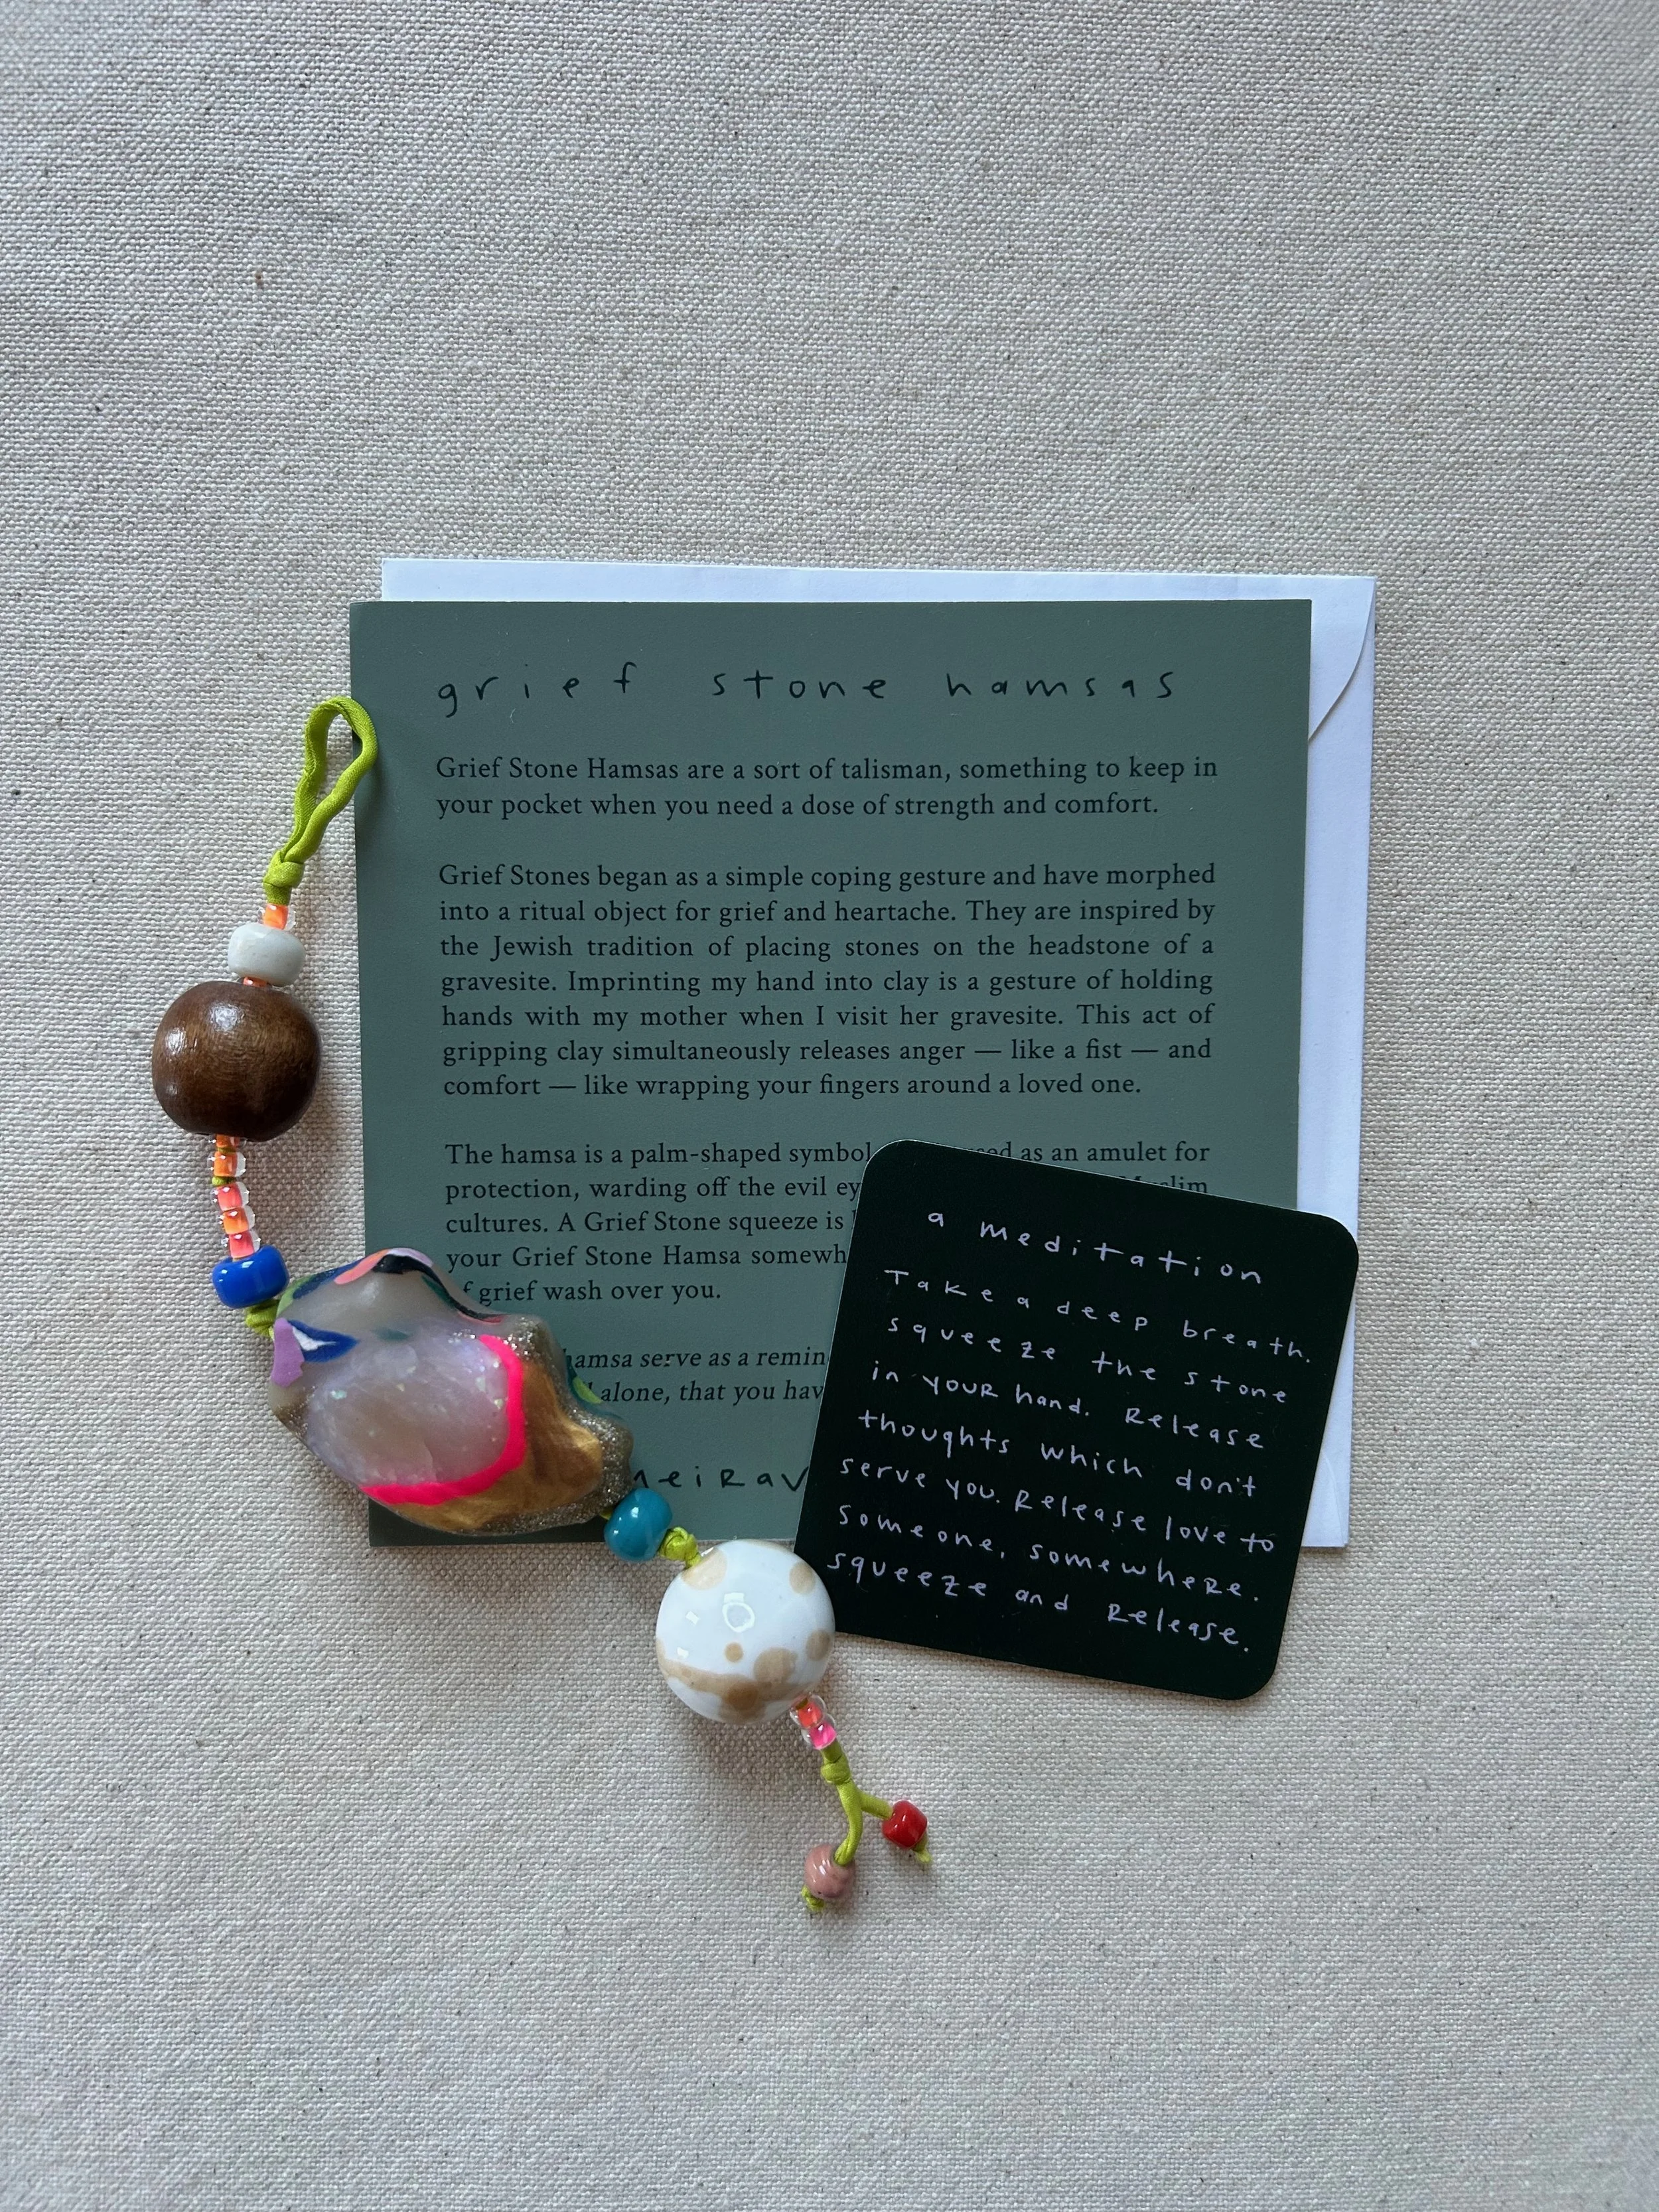 grief stone hamsas
Grief Stone Hamsas are a sort of talisman, something to keep in
your pocket when you need a dose of strength and comfort.
Grief Stones began as a simple coping gesture and have morphed
into a ritual object for grief and heartache. They are inspired by
the Jewish tradition of placing stones on the headstone of a
gravesite. Imprinting my hand into clay is a gesture of holding
hands with my mother when I visit her gravesite. This act of
gripping clay simultaneously releases anger — like a fist — and
comfort — like wrapping your fingers around a loved one.
The hamsa is a palm-shaped symbol as an amulet for
protection, warding off the evil
cultures. A Grief Stone squeeze is
your Grief Stone Hamsa
grief wash over you.
serve as a
alone, that you
a meditation
Take a deep breath.
squeeze the stone
in YOUR hand. Release
thoughts which don't
serve you. Release love to
someone, somewheRe.
squeeze and Release.